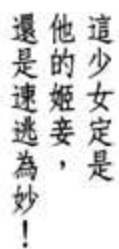 這少女定是
他的姬妾，
還是速逃為妙！